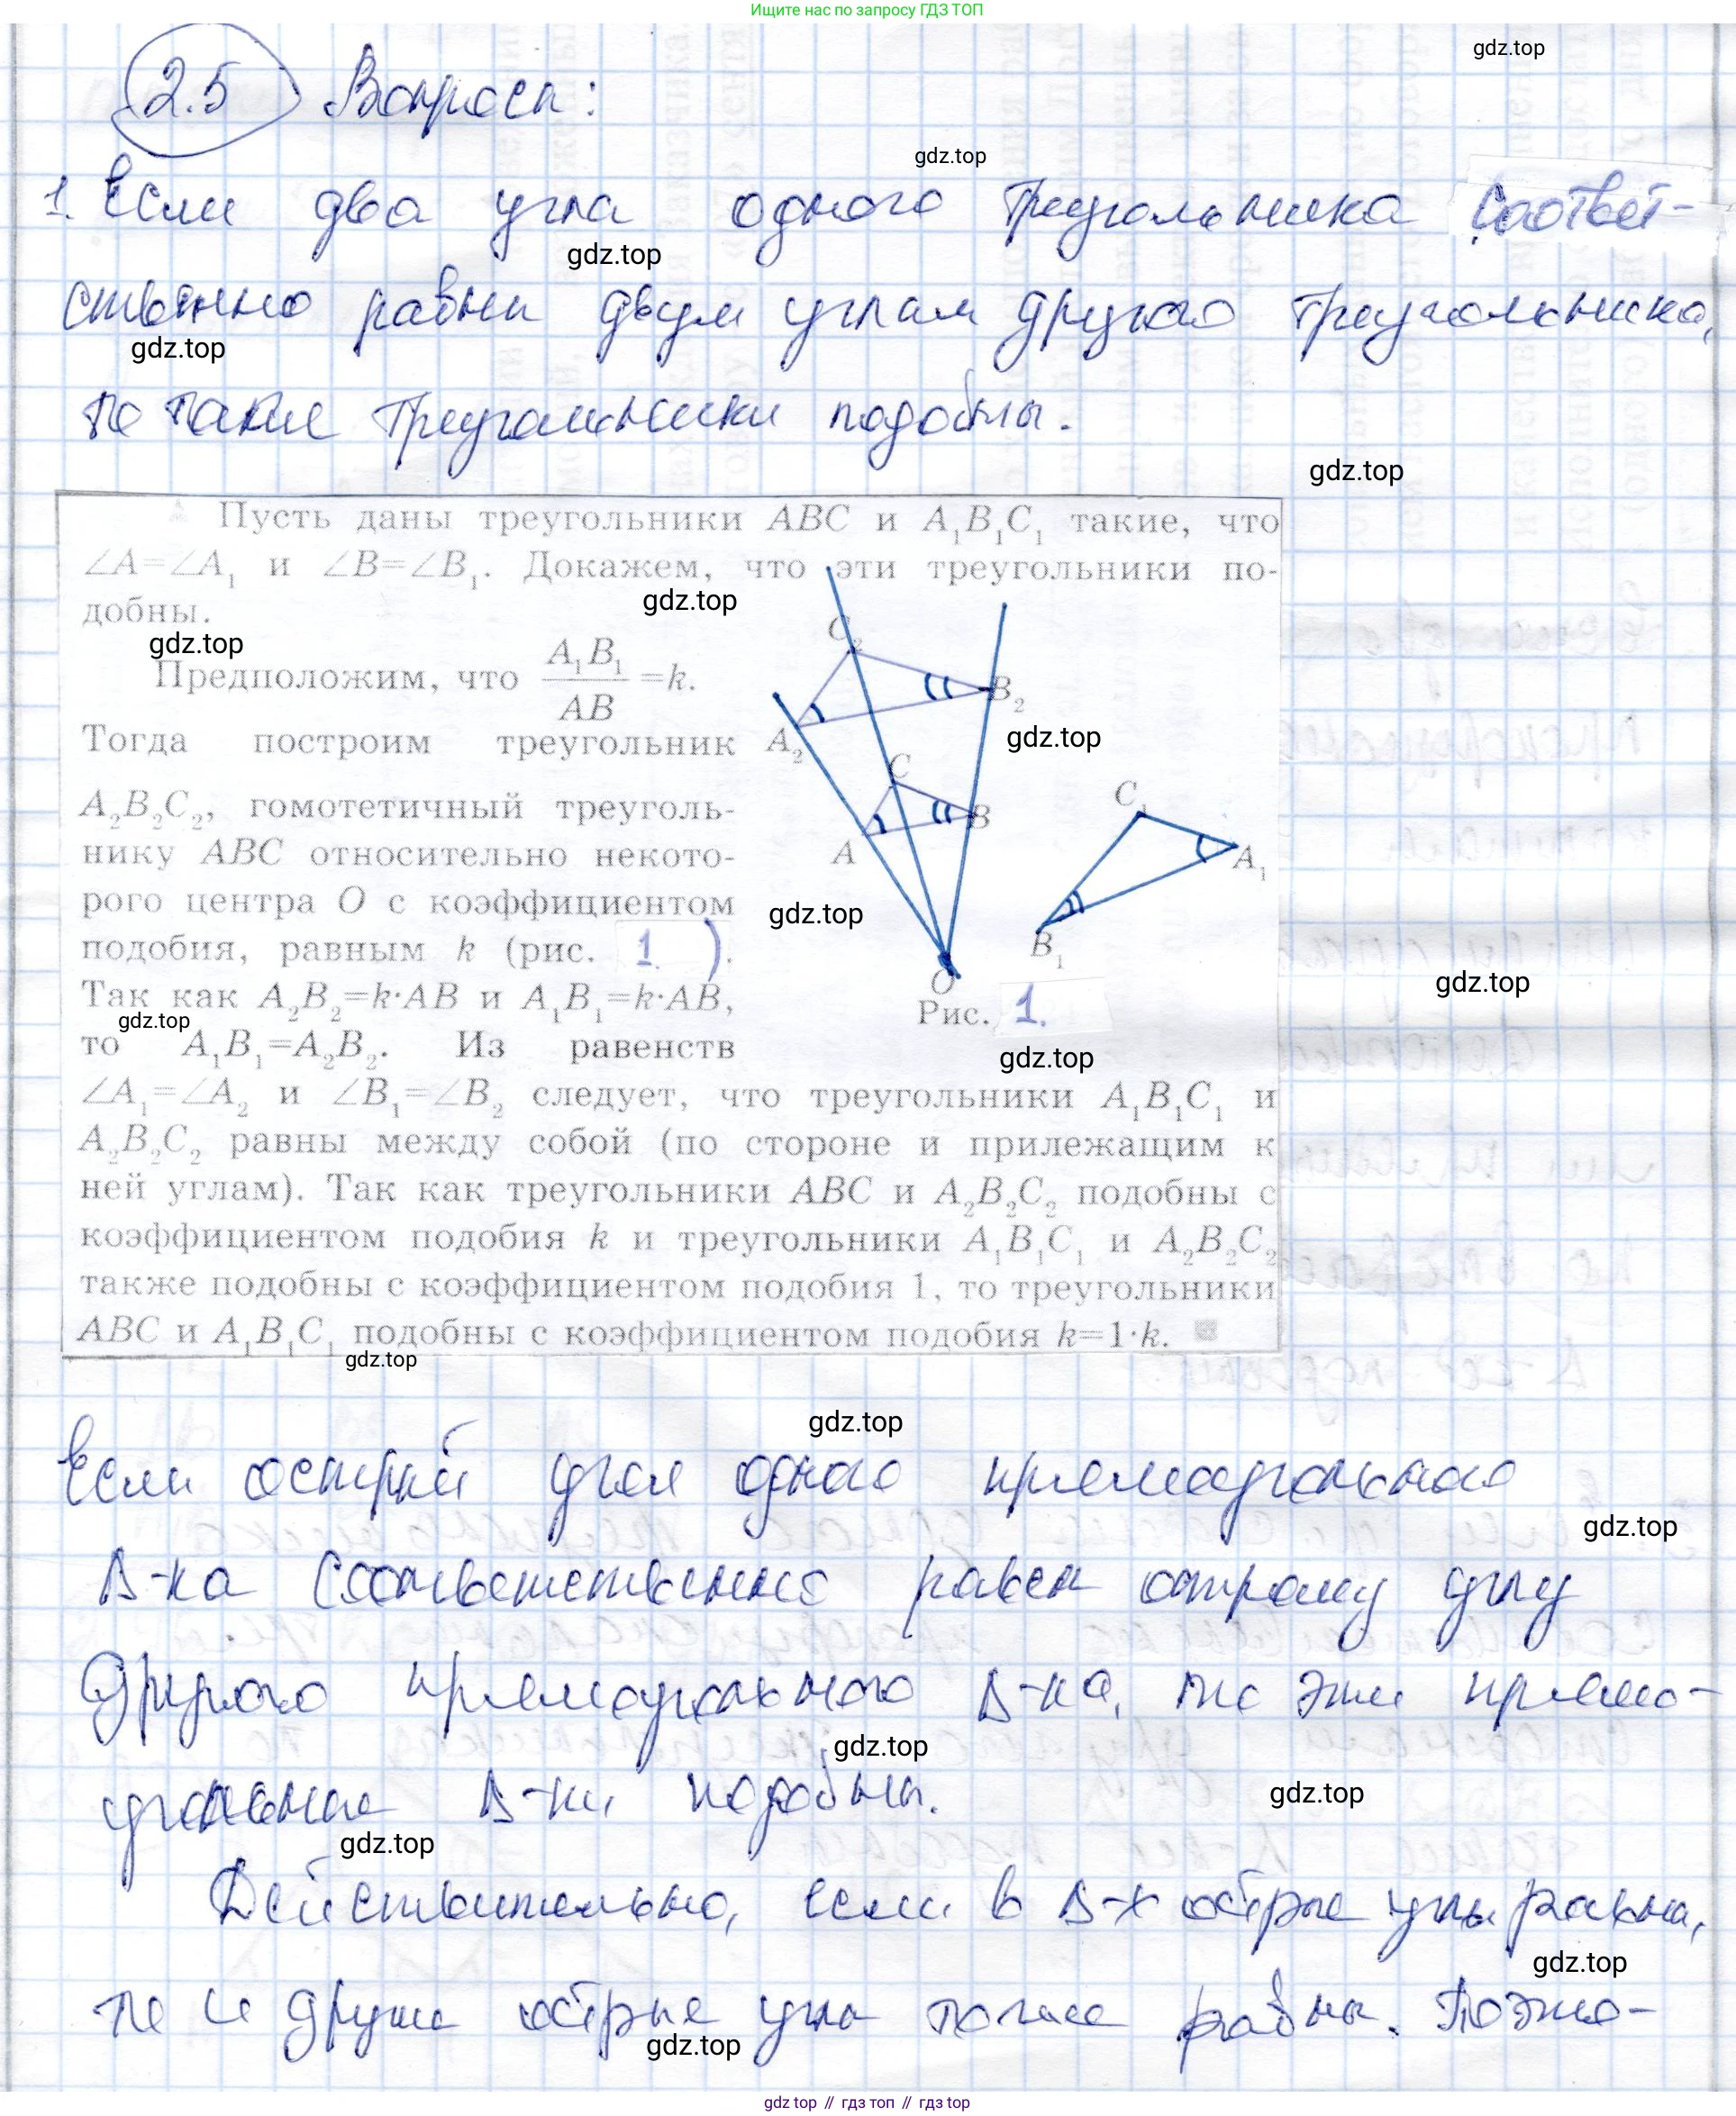 Ищите нас по запросу ГДЗ ТОП
gdz.top
2.5 Вопросы:
gdz.top
1. Если два угла одного треугольника соответ-
gdz.top
ственно равны двум углам другого треугольника,
gdz.top
то такие треугольники подобны.
gdz.top
Пусть даны треугольники ABC и A₁B₁C₁ такие, что
∠A=∠A₁ и ∠B=∠B₁. Докажем, что эти треугольники по-
gdz.top
добны.
gdz.top
Предположим, что A₁B₁/AB =k.
Тогда построим треугольник
A₂B₂C₂, гомотетичный треуголь-
нику ABC относительно некото-
рого центра O с коэффициентом
подобия, равным k (рис. 1.).
Так как A₂B₂=k·AB и A₁B₁=k·AB,
gdz.top
то A₁B₁=A₂B₂. Из равенств
C₂
B₂
A₂
gdz.top
C
B
A
C₁
A₁
gdz.top
B₁
O
gdz.top
Рис. 1.
gdz.top
∠A₁=∠A₂ и ∠B₁=∠B₂ следует, что треугольники A₁B₁C₁ и
A₂B₂C₂ равны между собой (по стороне и прилежащим к
ней углам). Так как треугольники ABC и A₂B₂C₂ подобны с
коэффициентом подобия k и треугольники A₁B₁C₁ и A₂B₂C₂
также подобны с коэффициентом подобия 1, то треугольники
ABC и A₁B₁C₁ подобны с коэффициентом подобия k=1·k.
gdz.top
gdz.top
Если острый угол одного прямоугольного
gdz.top
Δ-ка соответственно равен острому углу
другого прямоугольного Δ-ка, то эти прямо-
gdz.top
угольные Δ-ки подобны.
gdz.top
gdz.top
Действительно, если в Δ-х острые углы равны,
gdz.top
то и другие острые углы тоже равны. Поэто-
gdz.top
gdz.top // гдз топ // гдз top